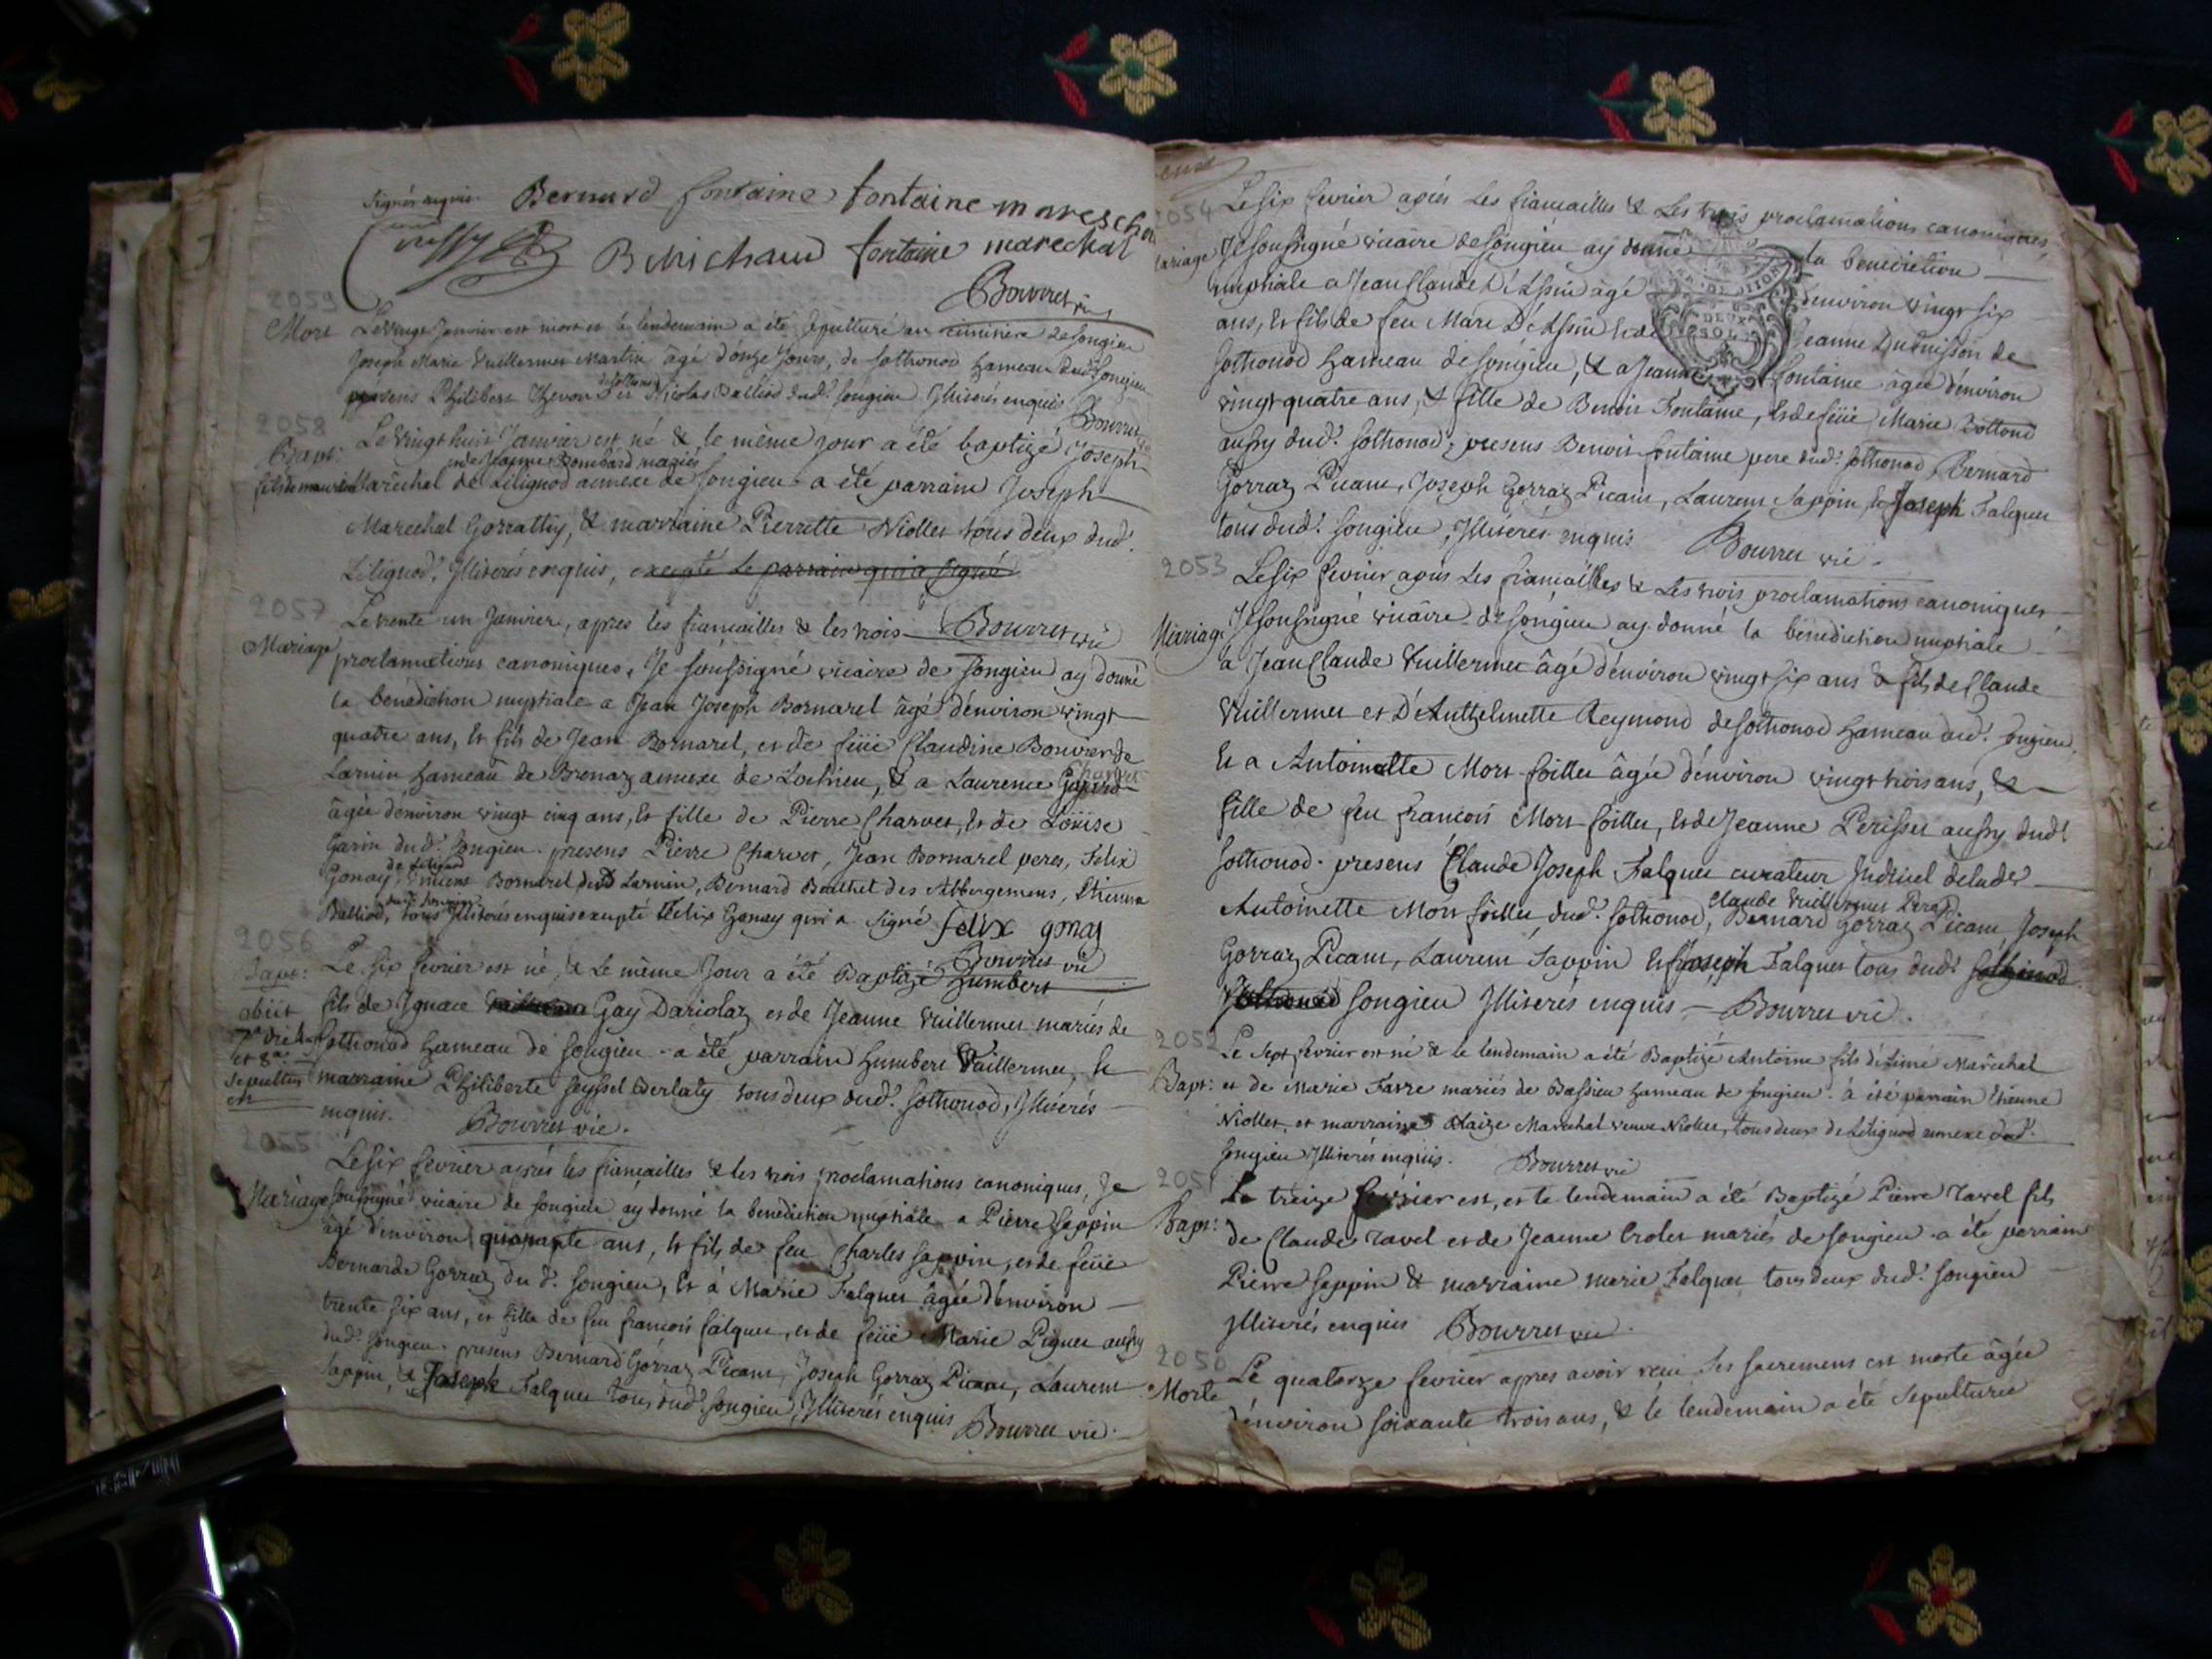 signés requis. Bernard fontaine fontaine marescha
B Michaud fontaine marechal
Bourret vic
2059
Mort Le vingt Janvier est mort et le lendemain a été sepulturé au cimitiere de songieu
Joseph Marie Vuillermet Martin âgé d'onze jours, de sothonod hameau dud songieu
presens Philibert Thevon et Nicolas Balliod dud. songieu Illiterés enquis
Bourret
2058
Bapt: Le vingt huit Janvier est né & le même jour a été baptizé Joseph
et de Jeanne Bombard mariés
fils de Marechal de Lilignod annexe de songieu a été parrain Joseph
Marechal Gorrathy, & marraine Pierrette Niollet tous deux dud.
Lilignod, Illiterés enquis, excepté le parrain qui a signé
2057
Le trente un Janvier, apres les fiancailles & les trois Bourret vic
Mariage proclamations canoniques, Je soussigné vicaire de songieu ay donné
la benediction nuptiale a Jean Joseph Bornarel âgé d'environ vingt
quatre ans, & fils de Jean Bornarel, et de feüe Claudine Bouvier de
Larnin hameau de Brenaz annexe de Lochieu, & a Laurence Charvet
âgée d'environ vingt cinq ans, & fille de Pierre Charvet, & de Loüise
Garin dud. songieu. presens Pierre Charvet, Jean Bornarel peres, Felix
de Lilignod
Gonay, Bornarel dud Larnin, Bernard Berthet des Abbergemens, Etienne
dud. songieu
Balliod, tous Illiterés enquis excepté Felix Gonay qui a signé felix gonay
2056
Bourret vic
Bapt: Le six fevrier est né & le même Jour a été Baptizé Humbert
obiit fils de Ignace Gay Dariolaz et de Jeanne Vuillermet mariés de
et 8a sothonod hameau de songieu - a été parrain Humbert Vuillermet, &
sepultus marraine Philiberte seyssel tous deux dud. sothonod, Illiterés
est enquis. Bourret vic.
2055
Le six fevrier aprés les fiancailles & les trois proclamations canoniques, Je
Mariage soussigné vicaire de songieu ay donné la benediction nuptiale a Pierre sappin
âgé d'environ quarante ans, & fils de feu Charles sappin, et de feüe
Bernarde Gorraz du d. songieu, & à Marie Falquet âgée d'environ
trente six ans, et fille de feu francois falquet, et de feüe Marie Piquet aussy
dud. songieu. presens Bernard Gorraz Picant, Joseph Gorraz Picant, Laurent
sappin, & Joseph Falquet tous dud. songieu, Illiterés enquis Bourret vic.
2054 Le six fevrier aprés les fiancailles & les trois proclamations canoniques,
Mariage Je soussigné vicaire de songieu ay donné la benediction
nuptiale a Jean Claude D'Assin âgé d'environ vingt six
DEUX
SOL
ans, & fils de feu Marc D'Assin & de Jeanne Dubuisson de
sothonod hameau de songieu, & a Jeanne fontaine âgée d'environ
vingt quatre ans, & fille de Benoit Fontaine, & de feüe Marie Bottond
aussy dud. sothonod, presens Benoit fontaine pere dud. sothonod, Bernard
Gorraz Picant, Joseph Gorraz Picant, Laurent sappin, & Joseph Falquet
tous dud. songieu, Illiterés enquis Bourret vic.
2053
Le six fevrier aprés les fiancailles & les trois proclamations canoniques
Mariage Je soussigné vicaire de songieu ay donné la benediction nuptiale
à Jean Claude Vuillermet âgé d'environ vingt six ans & fils de Claude
Vuillermet et D'Anthelmette Reymond de sothonod hameau dud. songieu.
& a Antoinette Mort foillet âgée d'environ vingt trois ans, &
fille de feu francois Mort foillet, & de Jeanne Perisset aussy dud
sothonod. presens Claude Joseph Falquet curateur Judiciel de lade
claude Vuillermet
Antoinette Mort foillet, dud. sothonod, Bernard Gorraz Picant Joseph
Gorraz Picant, Laurent sappin & Joseph Falquet tous dud. sothonod
sothonod songieu Illiterés enquis - Bourret vic.
2052
Le sept fevrier est né & le lendemain a été Baptizé Antoine fils d'Aimé Marechal
Bapt: et de Marie Favre mariés de Bassieu hameau de songieu. à été parrain Etienne
Niollet, et marraine Marechal veuve Niollet, tous deux de Lilignod annexe dud.
songieu Illiterés enquis. Bourret vic
2051
Le treize fevrier est, et le lendemain a été Baptizé Pierre Tavel fils
Bapt: de Claude Tavel et de Jeanne mariés de songieu a été parrain
Pierre sappin & marraine marie Falquet tous deux dud. songieu
Illiterés enquis Bourret vic.
2050
Le quatorze fevrier apres avoir reçu les sacremens est morte âgée
Morte d'environ soixante trois ans, & le lendemain a été sepulturée